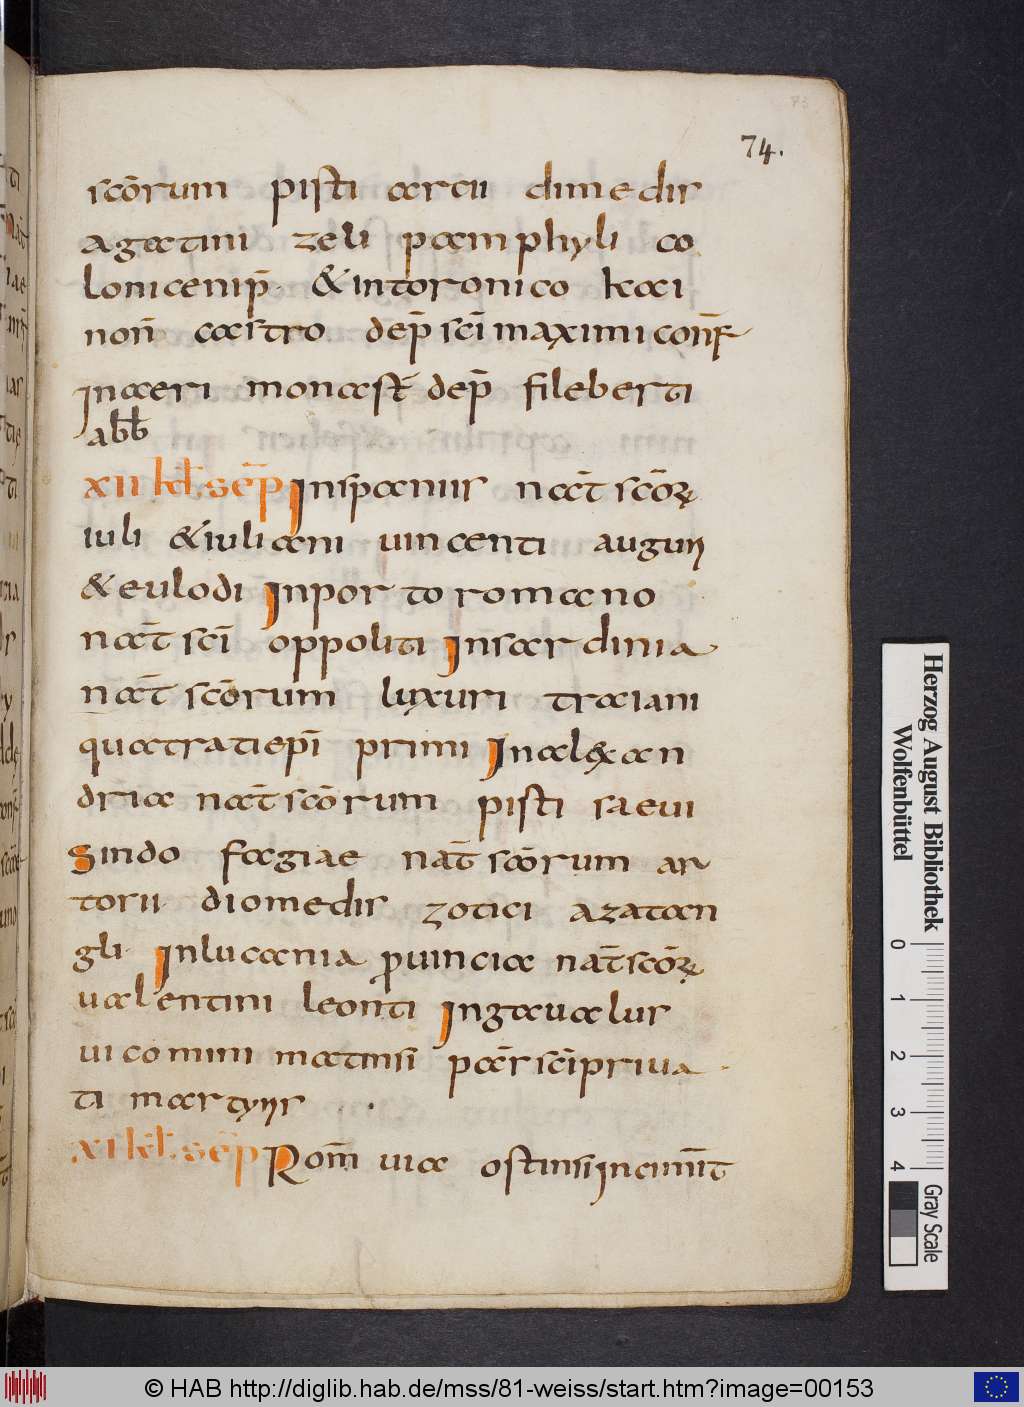 74.
scōrum pisti arcii dimedis
agatini zeli pamphyli co
lonicenip̄ & intoronico kai
non̄ castro dep̄ sc̄i maximi conf̄
inaeri monast̄ dep̄ fileberti
abb̄
XII kl̄. sēp̄ Inspaniis nat̄ scōrꝫ
iuli & iuliani uincenti augurii
& eulodi Inporto romano
nat̄ sc̄i oppoliti Insardinia
nat̄ scōrum luxuri traciani
quatratiepī primi Inalexan
dria nat̄ scōrum pisti saeui
Sindo fagiae nat̄ scōrum ar
torii diomedis zotici azatan
gli Inlucania prouincia nat̄ scōrꝫ
ualentini leonti Ingaualus
uicomini matinsi pas̄ sc̄i priua
ti martyris
XI kl̄. sēp̄ Rom̄ uia ostinsi incimit̄
Herzog August Bibliothek
Wolfenbüttel
0 1 2 3 4
Gray Scale
© HAB http://diglib.hab.de/mss/81-weiss/start.htm?image=00153